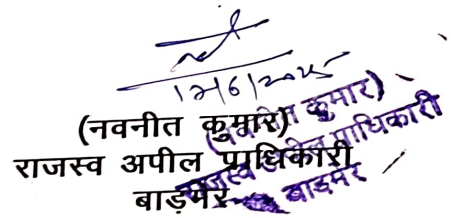 12/6/2025
(नवनीत कुमार)
राजस्व अपील प्राधिकारी
बाड़मेर
(नवनीत कुमार)
राजस्व अपील प्राधिकारी
बाड़मेर